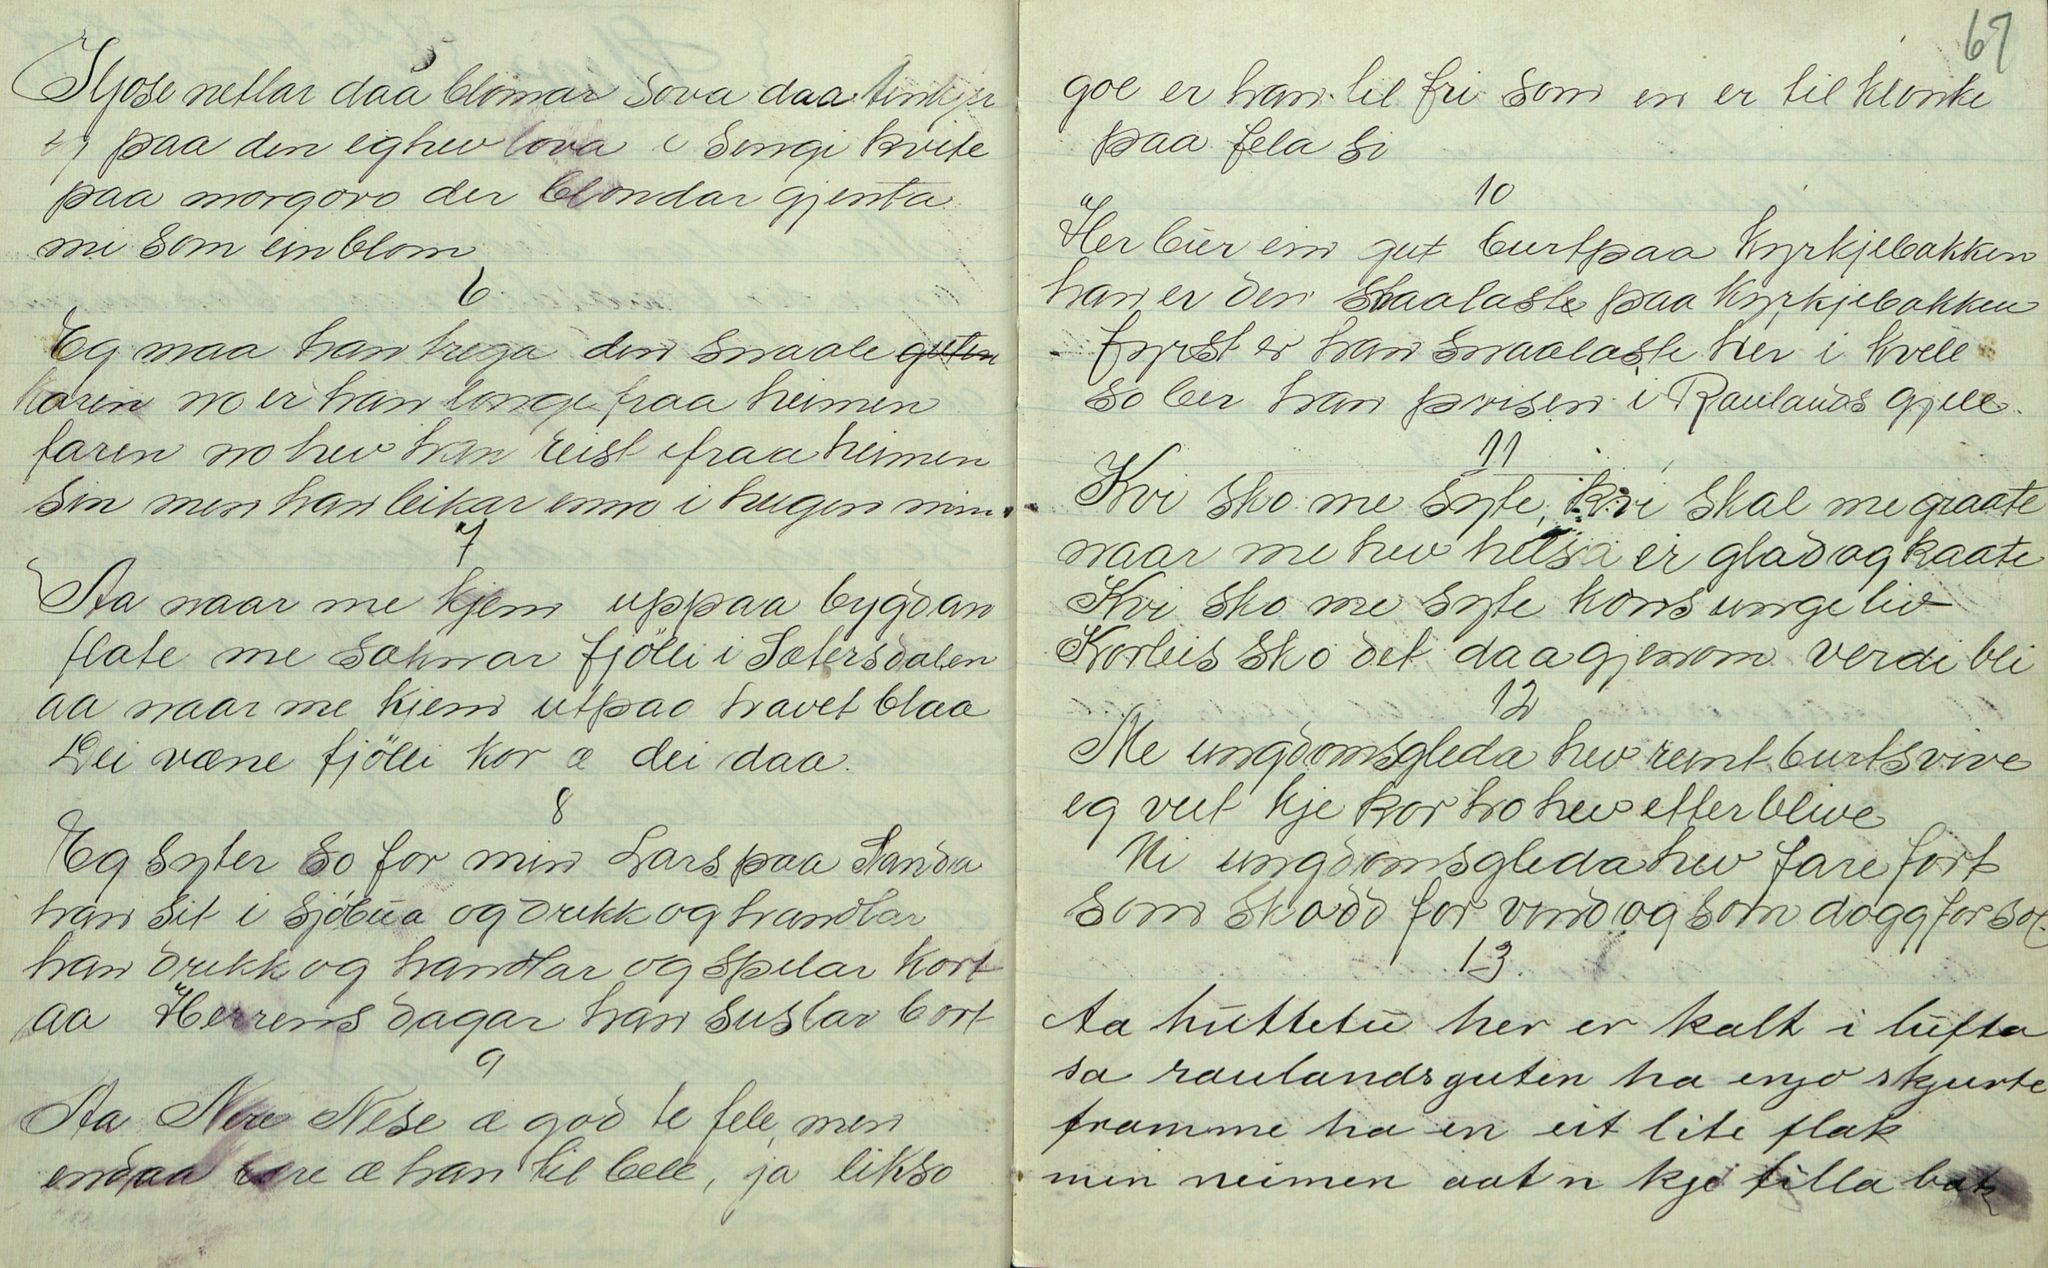 5
Ljose netlar daa blomar sova daa tenkjer
eg paa den eg hev lova i sengi kvite
paa morgoro der blondar gjenta
mi som ein blom
6
Eg maa han trega den snaale guten
karin no er han longe fraa heimen
faren no hev han reist ifraa heimen
sin men han leikar enno i hugen min.
7
Aa naar me kjem uppaa bygdan
flate me saknar fjölli i Sætersdalen
aa naar me kjem utpao havet blaa
Dei væne fjölli kor æ dei daa.
8
Eg syter so for min Lars paa Sanda
han sit i sjöbua og drikk og handlar
han drikk og handlar og spelar kort
aa Herrens dagar han suslar bort
9
Aa Nere Nese æ god te fele, men
endaa bere æ han til bell, ja likso
67
goe er han til fri som en er til klonke
paa fela si
10
Her bur ein gut burtpaa Kyrkjebakken
han er den snaalaste paa Kyrkjebakken
fyrst er han snaalaste her i kvell
so ber han prisen i Raulands gjell.
11
Kvi sko me syte, kvi skal me graate
naar me hev helsa er glad og kaate
Kvi sko me syte kons unge liv
Korleis sko det daa gjenom verdi bli
12
Me ungdomsgleda hev rent burtsvive
eg veit kje kor ho hev etterblive
Mi ungdomsgleda hev fare fort
som skodd for vind og som dogg for sol.
13.
Aa huttetu her er kalt i lufta
sa raulandsguten ha enjo skjurte
framme ha en eit lite flak
min neimen aat n kje filla bak